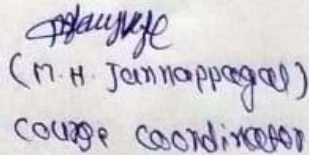 (M.H. Jannappagoal)
course coordinator